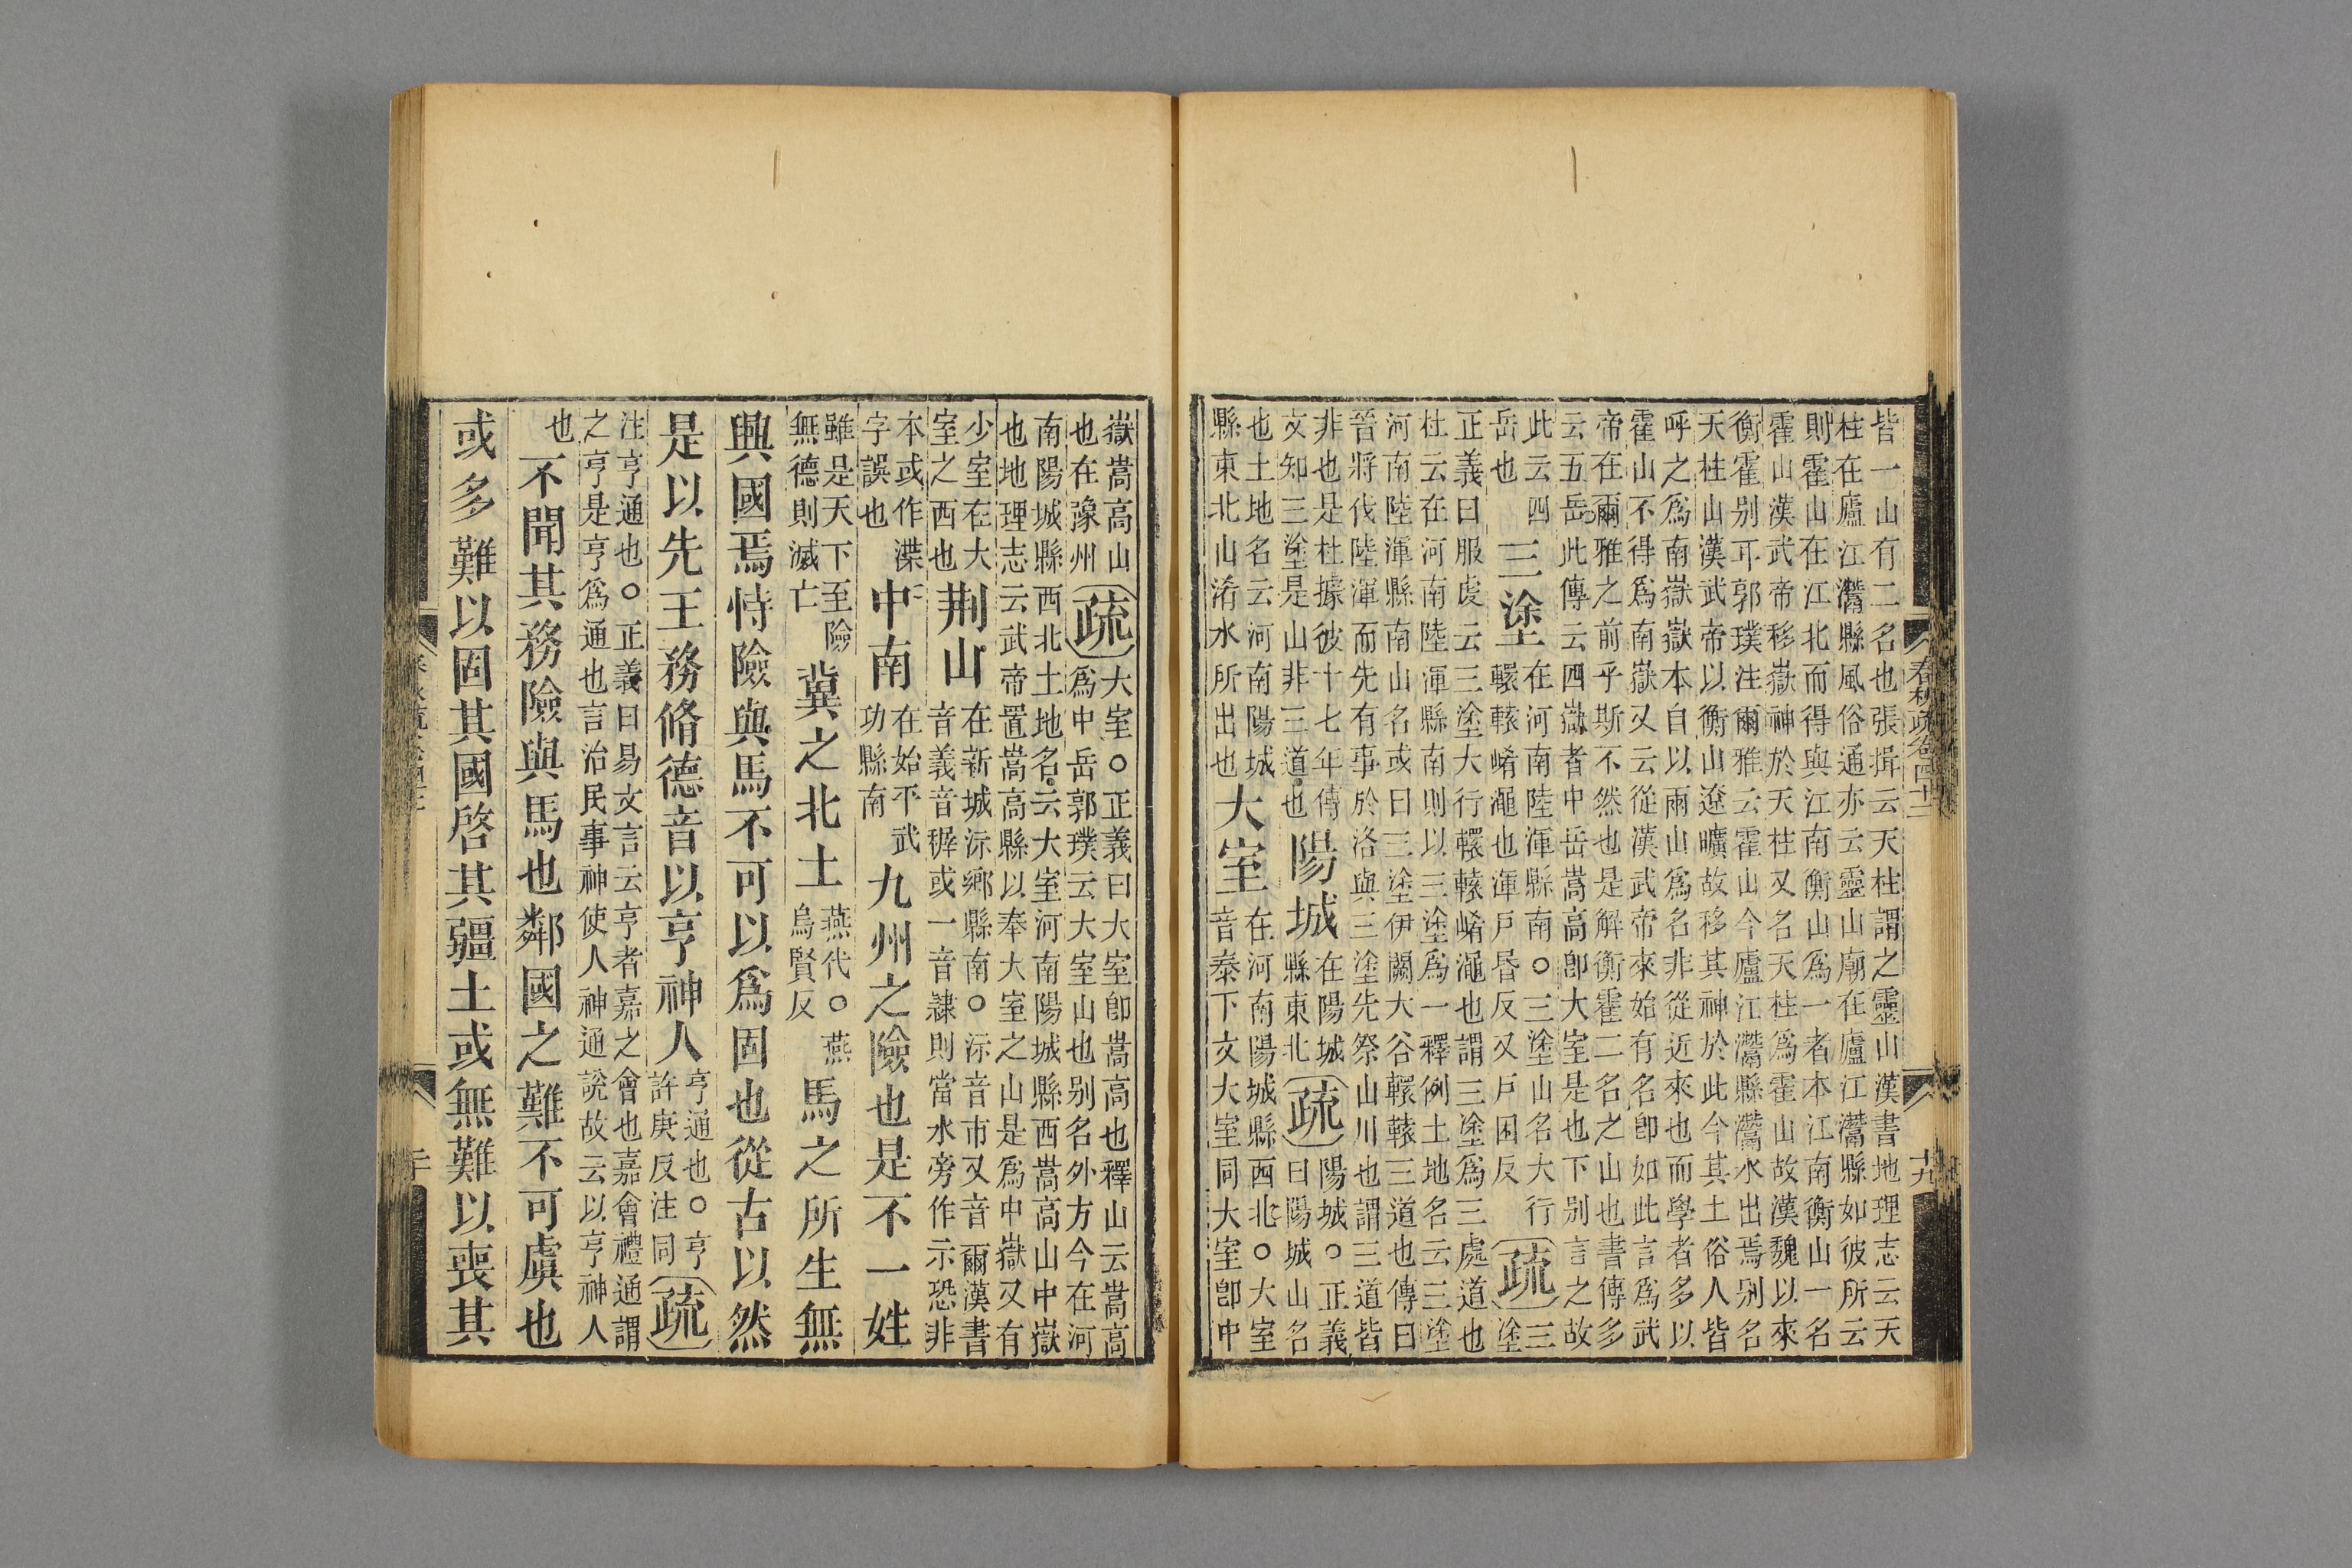 皆一山有二名也張揖云天柱謂之靈山漢書地理志云天
柱在廬江灊縣風俗通亦云靈山廟在廬江灊縣如彼所云
則霍山在江北而得與江南衡山爲一者本江南衡山一名
霍山漢武帝移嶽神於天柱又名天柱爲霍山故漢魏以來
衡霍别耳郭璞注爾雅云霍山今廬江灊縣灊水出焉别名
天柱山漢武帝以衡山遼曠故移其神於此今其土俗人皆
呼之爲南嶽嶽本自以兩山爲名非從近來也而學者多以
霍山不得爲南嶽又云從漢武帝來始有名卽如此言爲武
帝在爾雅之前乎斯不然也是解衡霍二名之山也書傳多
云五岳此傳云四嶽者中岳嵩高卽大室是也下别言之故
此云四岳也三塗在河南陸渾縣南○三塗山名大行轘轅崤澠也渾戸昬反又戸困反疏三塗
正義曰服虔云三塗大行轘轅崤澠也謂三塗爲三處道也
杜云在河南陸渾縣南則以三塗爲一釋例土地名云三塗
河南陸渾縣南山名或曰三塗伊闕大谷轘轅三道也傳曰
晉將伐陸渾而先有事於洛與三塗先祭山川也謂三道皆
非也是杜據彼十七年傳文知三塗是山非三道也陽城在陽城縣東北疏陽城○正義曰陽城山名
也土地名云河南陽城縣東北山洧水所出也大室在河南陽城縣西北○大室音泰下文大室同大室卽中
春秋疏卷四十二
十九
嶽嵩高山也在豫州疏大室○正義曰大室卽嵩高也釋山云嵩高爲中岳郭璞云大室山也别名外方今在河
南陽城縣西北土地名云大室河南陽城縣西嵩高山中嶽
也地理志云武帝置嵩高縣以奉大室之山是爲中嶽又有
少室在大室之西也荆山在新城沶鄉縣南○沶音市又音爾漢書音義音稺或一音隷則當水旁作示恐非
本或作渫字誤也中南在始平武功縣南九州之險也是不一姓
雖是天下至險無德則滅亡冀之北土燕代○燕烏賢反馬之所生無
興國焉恃險與馬不可以爲固也從古以然
是以先王務脩德音以亨神人亨通也○亨許庚反注同疏
注亨通也○正義曰易文言云亨者嘉之會也嘉會禮通謂
之亨是亨爲通也言治民事神使人神通說故云以亨神人
也不聞其務險與馬也鄰國之難不可虞也
或多難以固其國啓其疆土或無難以喪其
二十